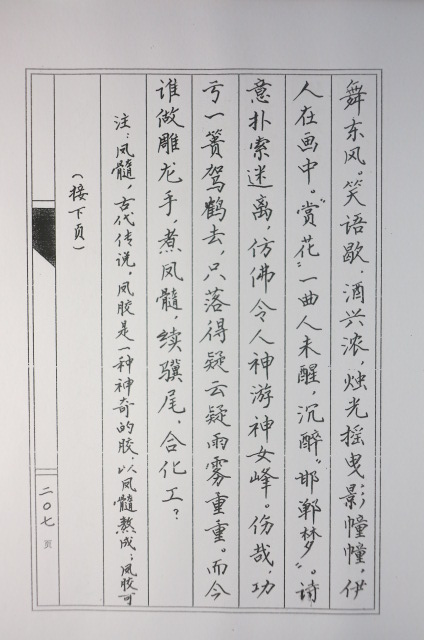 舞东风。笑语歇，酒兴浓，烛光摇曳影幢幢，伊
人在画中。赏“花”一曲人未醒，沉醉“邯郸梦”。诗
意扑索迷离，仿佛令人神游神女峰。伤哉，功
亏一篑驾鹤去，只落得疑云疑雨雾重重。而今
谁做雕龙手，煮凤髓，续骥尾，合化工？
注：凤髓，古代传说，凤胶是一种神奇的胶，以凤髓熬成；凤胶可
（接下页）
二〇七 页